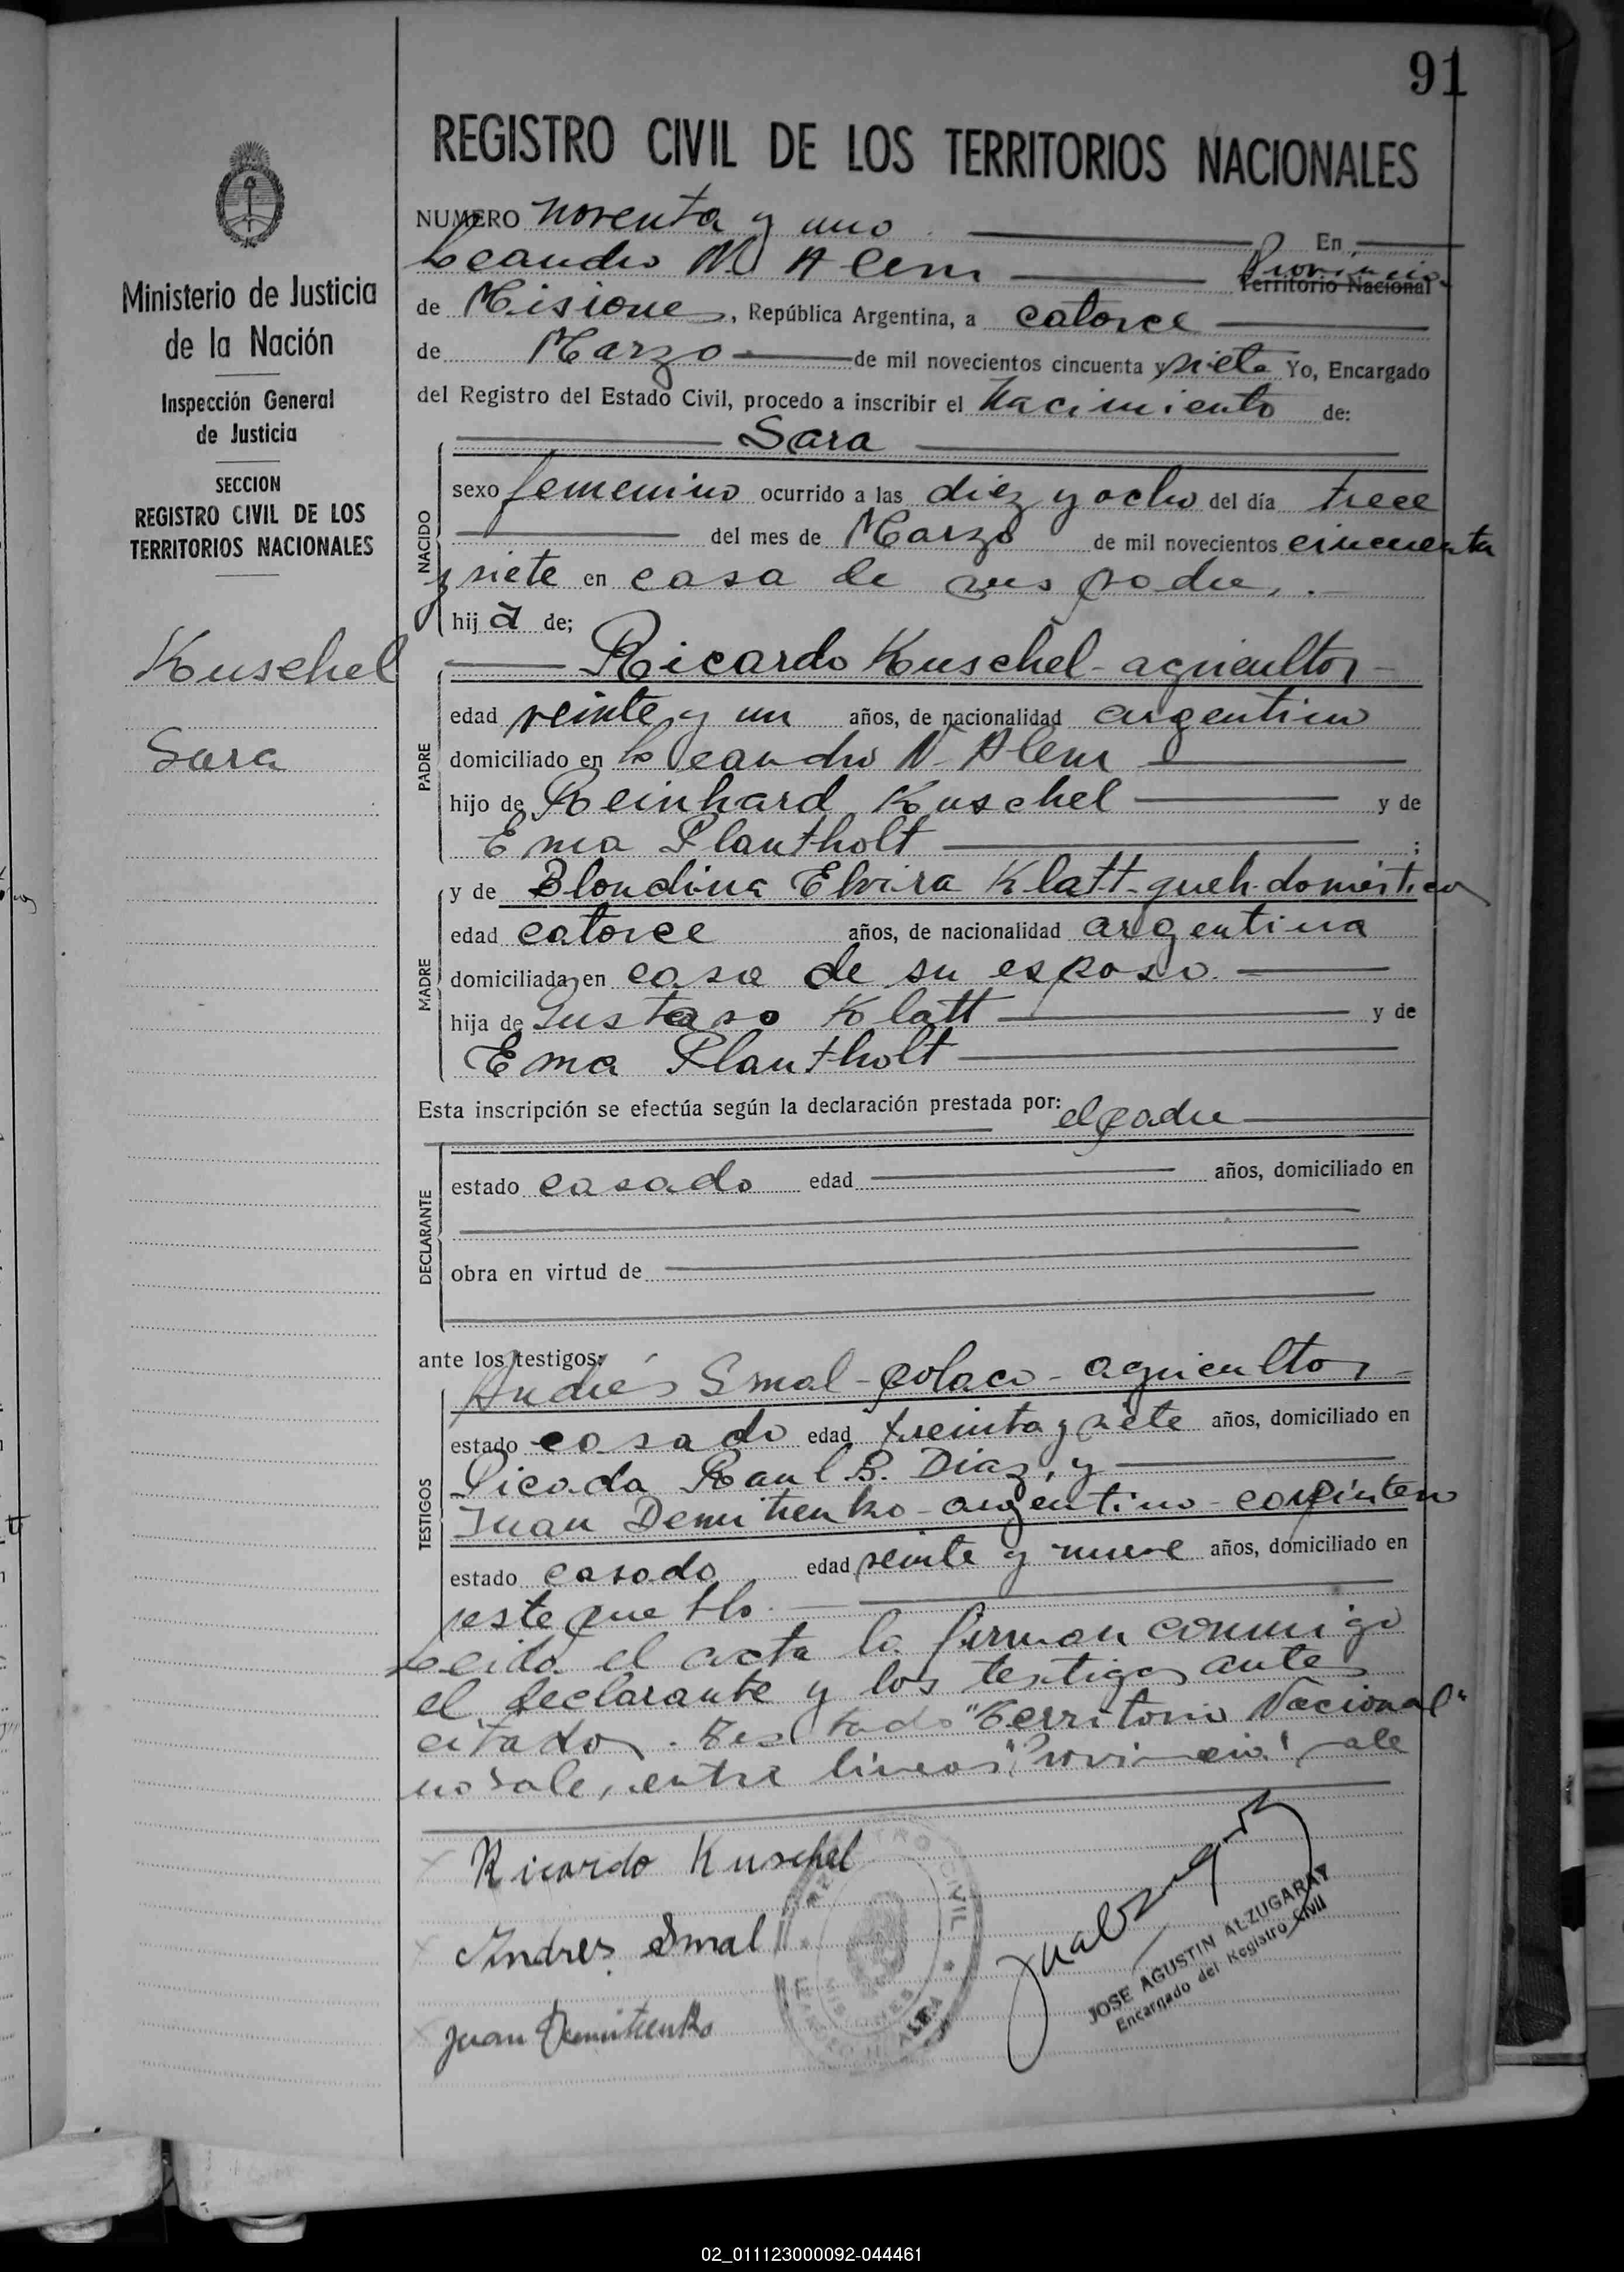 91
REGISTRO CIVIL DE LOS TERRITORIOS NACIONALES
Ministerio de Justicia
de la Nación
Inspección General
de Justicia
SECCION
REGISTRO CIVIL DE LOS
TERRITORIOS NACIONALES
Kuschel
Sara
NUMERO noventa y uno En
Leandro N. Alem Provincia
Territorio Nacional
de Misiones, República Argentina, a catorce
de Marzo de mil novecientos cincuenta y siete Yo, Encargado
del Registro del Estado Civil, procedo a inscribir el Nacimiento de:
Sara
NACIDO
sexo femenino ocurrido a las diez y ocho del día trece
del mes de Marzo de mil novecientos cincuenta
y siete en casa de sus padres.
hij a de;
PADRE
Ricardo Kuschel - agricultor
edad veinte y un años, de nacionalidad argentino
domiciliado en Leandro N. Alem
hijo de Reinhard Kuschel y de
Ema Plantholt ;
MADRE
y de Blondina Elvira Klatt - queh. domésticos
edad catorce años, de nacionalidad argentina
domiciliada en casa de su esposo.
hija de Gustavo Klatt y de
Ema Plantholt
Esta inscripción se efectúa según la declaración prestada por: el padre
DECLARANTE
estado casado edad años, domiciliado en
obra en virtud de
ante los testigos:
TESTIGOS
Andrés Smal - polaco - agricultor
estado casado edad treinta y siete años, domiciliado en
Picada Raul B. Diaz, y
Juan Demitrenko - argentino - carpintero
estado casado edad veinte y nueve años, domiciliado en
este pueblo.
Leida el acta la firman conmigo
el declarante y los testigos antes
citados. Testado "Territorio Nacional"
no vale, entre lineas "Provincia" vale
Ricardo Kuschel
Andres Smal
Juan Demitrenko
REGISTRO CIVIL
MISIONES
LEANDRO N. ALEM
JOSE AGUSTIN ALZUGARAY
Encargado del Registro Civil
02_011123000092-044461